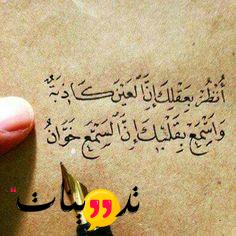 أُنْظُرْ بِعَقْلِكَ إِنَّ الْعَيْنَ كَاذِبَةٌ
وَاسْمَعْ بِقَلْبِكَ إِنَّ السَّمْعَ خَوَّانُ
تدوينات